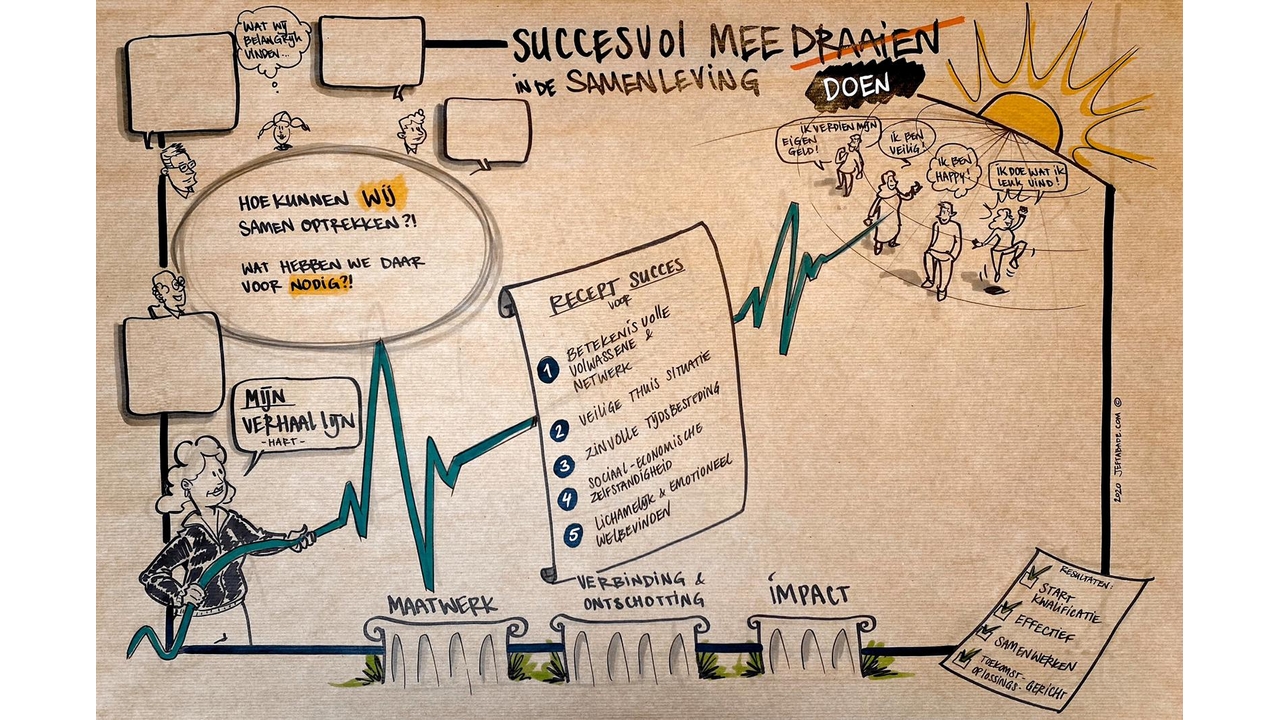 WAT WIJ
BELANGRIJK
VINDEN...
SUCCESVOL MEE DRAAIEN
IN DE SAMENLEVING
DOEN
IK VERDIEN MIJN
EIGEN
GELD!
IK BEN
VEILIG!
IK BEN
HAPPY!
IK DOE WAT IK
LEUK VIND!
HOE KUNNEN WIJ
SAMEN OPTREKKEN?!
WAT HEBBEN WE DAAR
VOOR NODIG?!
MIJN
VERHAALLIJN
- HART -
RECEPT SUCCES
VOOR
1 BETEKENISVOLLE
VOLWASSENE &
NETWERK
2 VEILIGE THUIS SITUATIE
3 ZINVOLLE TIJDSBESTEDING
4 SOCIAAL-ECONOMISCHE
ZELFSTANDIGHEID
5 LICHAMELIJK & EMOTIONEEL
WELBEVINDEN
MAATWERK
VERBINDING &
ONTSCHOTTING
IMPACT
RESULTATEN:
START
KWALIFICATIE
EFFECTIEF
SAMENWERKEN
TOEKOMST-
OPLOSSINGS-GERICHT
2020 JEFTABADE.COM ©